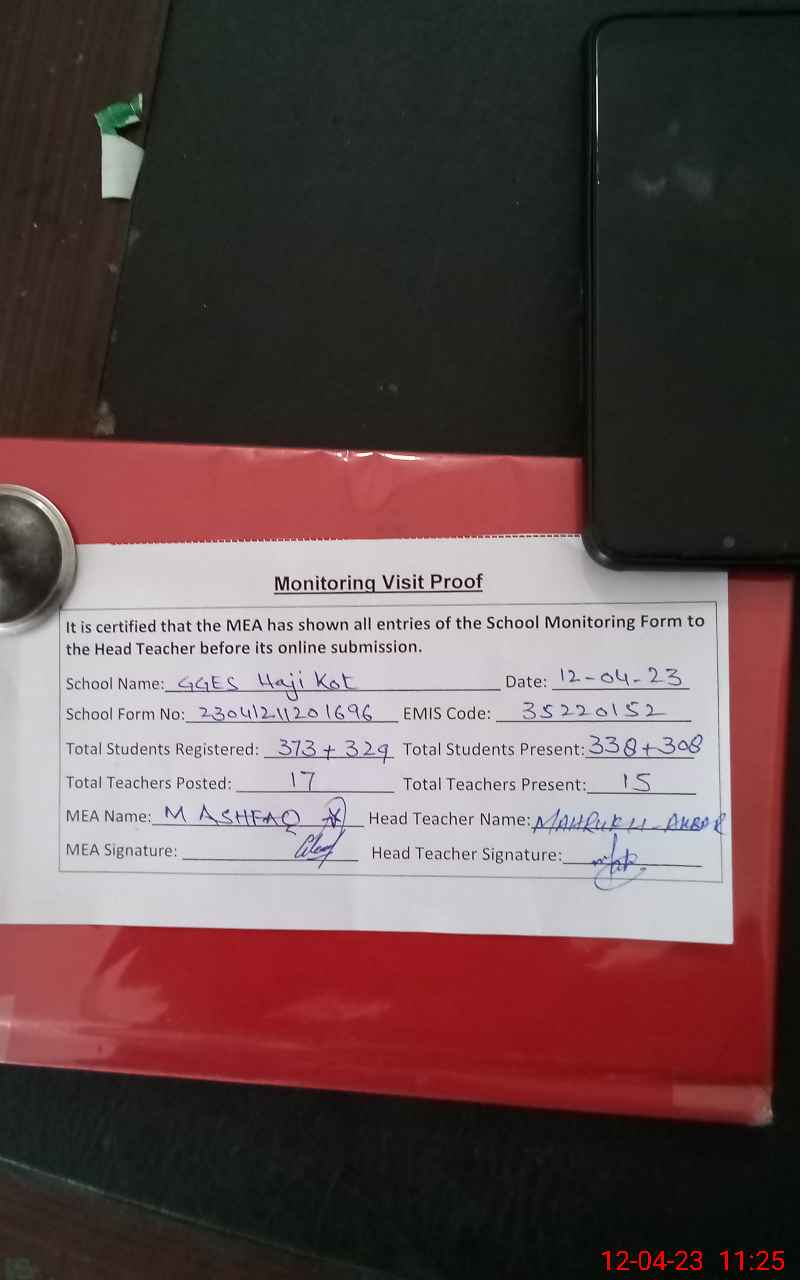 Monitoring Visit Proof
It is certified that the MEA has shown all entries of the School Monitoring Form to
the Head Teacher before its online submission.
School Name: GGES Haji Kot Date: 12-04-23
School Form No: 23041211201696 EMIS Code: 35220152
Total Students Registered: 373 + 329 Total Students Present: 338+308
Total Teachers Posted: 17 Total Teachers Present: 15
MEA Name: M ASHFAQ Head Teacher Name: MAHRUKH-AKBAR
MEA Signature: Head Teacher Signature:
12-04-23 11:25